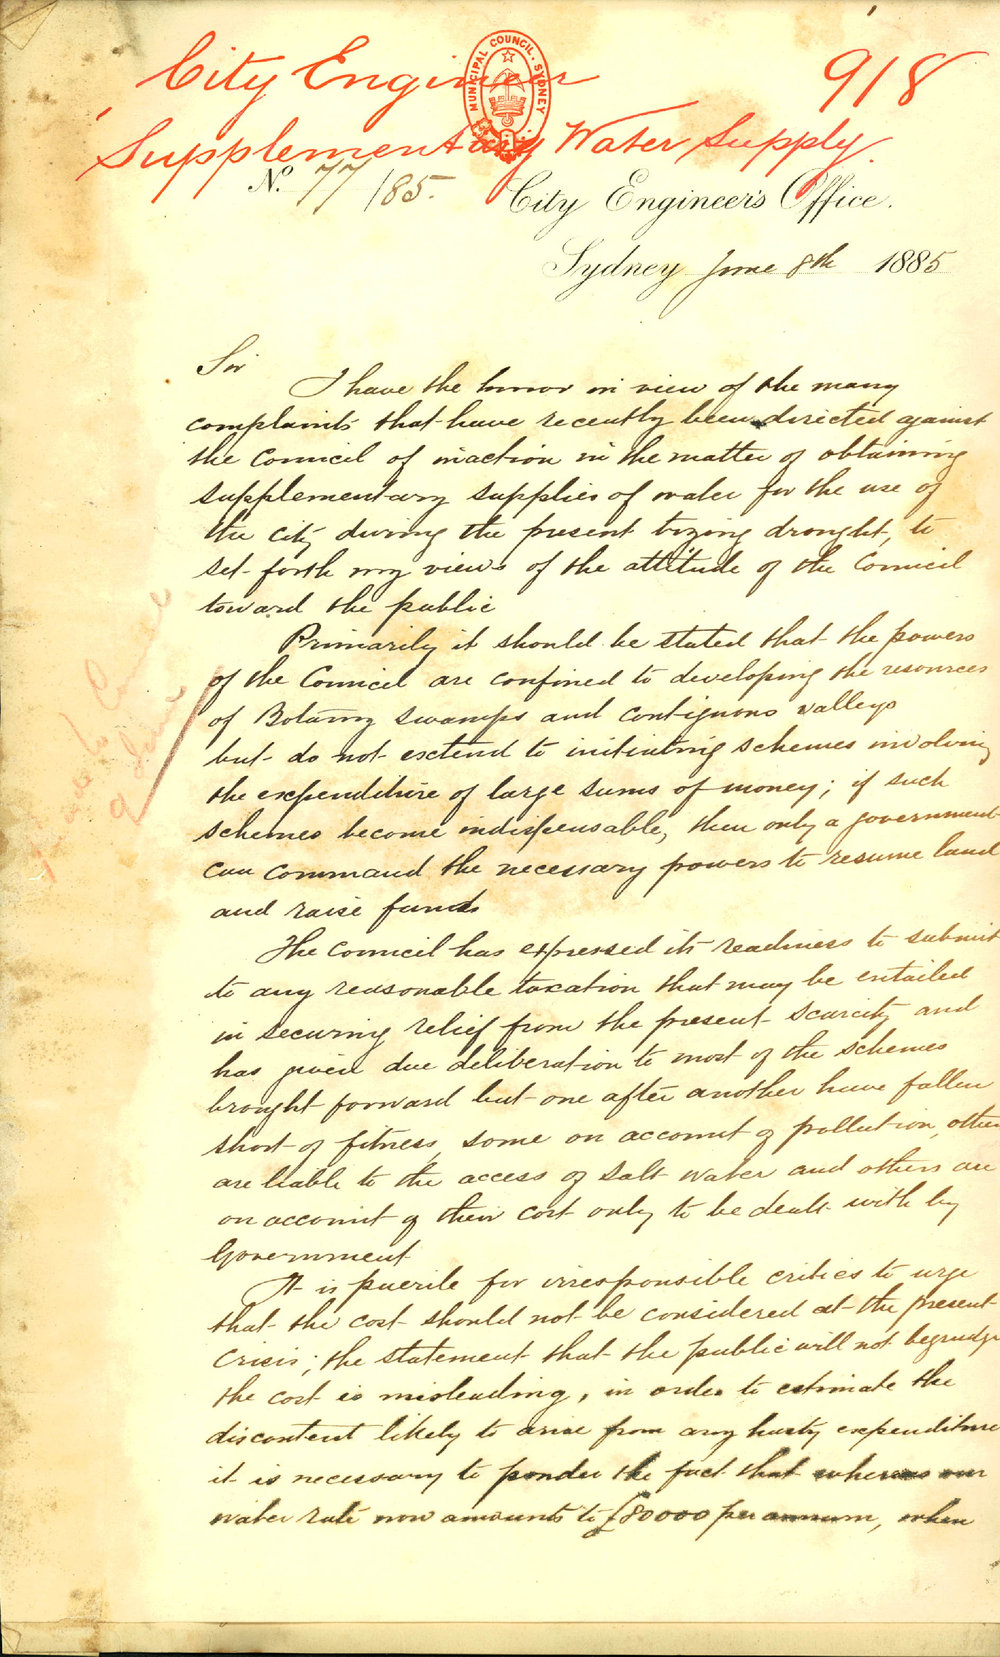 City Engineer
918
MUNICIPAL COUNCIL. SYDNEY
Supplementary Water Supply.
No. 77/85.
City Engineer's Office.
Sydney June 8th 1885
Sir
I have the honor in view of the many
complaints that have recently been directed against
the Council of inaction in the matter of obtaining
supplementary supplies of water for the use of
the city during the present drought, to
set forth my views of the attitude of the Council
toward the public
Primarily it should be stated that the powers
of the Council are confined to developing the resources
of Botany swamps and contiguous valleys
but do not extend to initiating schemes involving
the expenditure of large sums of money; if such
schemes become indispensable, then only a government
can command the necessary powers to resume land
and raise funds
The Council has expressed its readiness to submit
to any reasonable taxation that may be entailed
in securing relief from the present scarcity and
has given due deliberation to most of the schemes
brought forward but one after another have fallen
short of fitness, some on account of pollution, others
are liable to the access of salt water and others are
on account of their cost only to be dealt with by
Government
It is puerile for irresponsible critics to urge
that the cost should not be considered at the present
crisis; the statement that the public will not begrudge
the cost is misleading, in order to estimate the
discontent likely to arise from any hasty expenditure
it is necessary to ponder the fact that whereas our
water rate now amounts to £80000 per annum, when